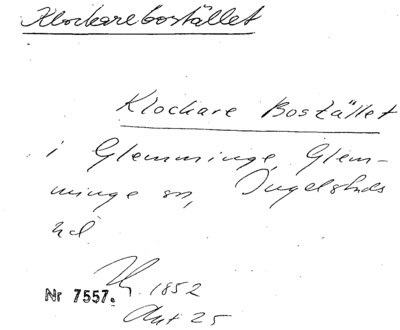 Klockarebostället
Klockare Bostället
i Glemminge, Glem-
minge sn, Ingelstads
hd
1852
Nr 7557.
Akt 25